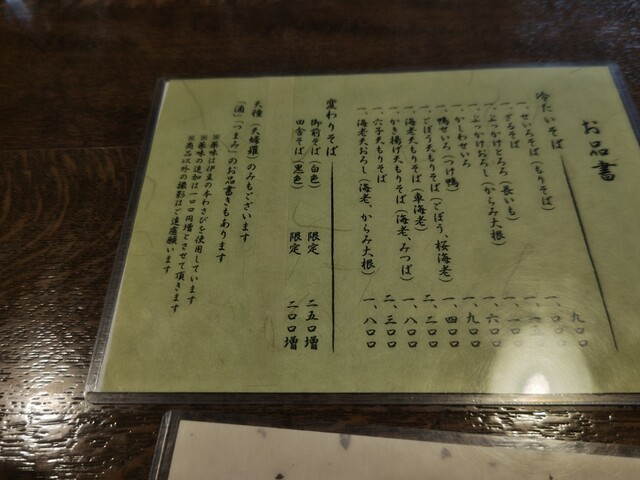 お品書
冷たいそば
一、せいろそば(もりそば) 九〇〇
一、ざるそば 一、〇〇〇
一、ぶっかけとろろ(長いも)
一、ぶっかけおろし(からみ大根) 一、一〇〇
一、かしわせいろ 一、六〇〇
一、鴨せいろ(つけ鴨) 一、九〇〇
一、ごぼう天もりそば(ごぼう、桜海老) 一、四〇〇
一、海老天もりそば(車海老) 二、二〇〇
一、かき揚げ天もりそば(海老、みつば) 一、八〇〇
一、穴子天もりそば 二、三〇〇
一、海老天おろし(海老、からみ大根) 一、八〇〇
変わりそば
御前そば(白色) 限定 二五〇増
田舎そば(黒色) 限定 二〇〇増
天種(天婦羅)のみもございます
「酒」「つまみ」のお品書きもあります
※薬味は伊豆の本わさびを使用しています
※薬味の追加は一〇〇円増とさせて頂きます
※商品以外の撮影はご遠慮願います